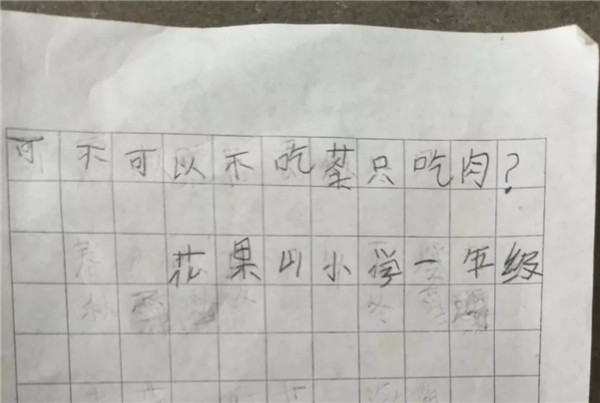 可不可以不吃茶只吃肉?
花果山小学一年级